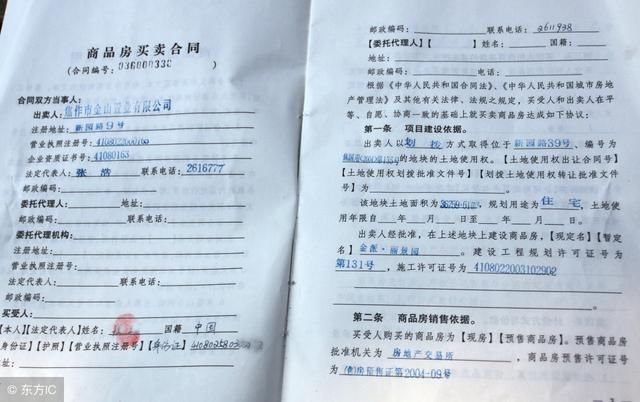 商品房买卖合同
(合同编号: 036000330 )
合同双方当事人:
出卖人: 焦作市金山置业有限公司
注册地址: 新园路9号
营业执照注册号: 4108022000165
企业资质证书号: 41080163
法定代表人: 张浩 联系电话: 2616777
邮政编码:
委托代理人: 地址:
邮政编码: 联系电话:
委托代理机构:
注册地址:
营业执照注册号:
法定代表人: 联系电话:
邮政编码:
买受人:
【本人】【法定代表人】姓名: 国籍 中国
身份证】【护照】【营业执照注册号】【身份证】
地址:
© 东方IC
邮政编码: 联系电话: 2611938
【委托代理人】【 】 姓名: 国籍:
地址:
邮政编码: 电话:
根据《中华人民共和国合同法》、《中华人民共和国城市房地
产管理法》及其他有关法律、法规之规定,买受人和出卖人在平
等、自愿、协商一致的基础上就买卖商品房达成如下协议:
第一条 项目建设依据。
出卖人以 划拨 方式取得位于 新园路39号 、编号为
的地块的土地使用权。【土地使用权出让合同号】
【土地使用权划拨批准文件号】【划拨土地使用权转让批准文件
号】为 。
该地块土地面积为 ,规划用途为 住宅 ,土地使
用年限自 年 月 日至 年 月 日。
出卖人经批准,在上述地块上建设商品房,【现定名】【暂定
名】 金派·丽景园 。建设工程规划许可证号为
第131号 ,施工许可证号为 4108022003102902
。
第二条 商品房销售依据。
买受人购买的商品房为【现房】【预售商品房】。预售商品房
批准机关为 房地产交易所 ,商品房预售许可证号
为 房预售证第2004-09号 。